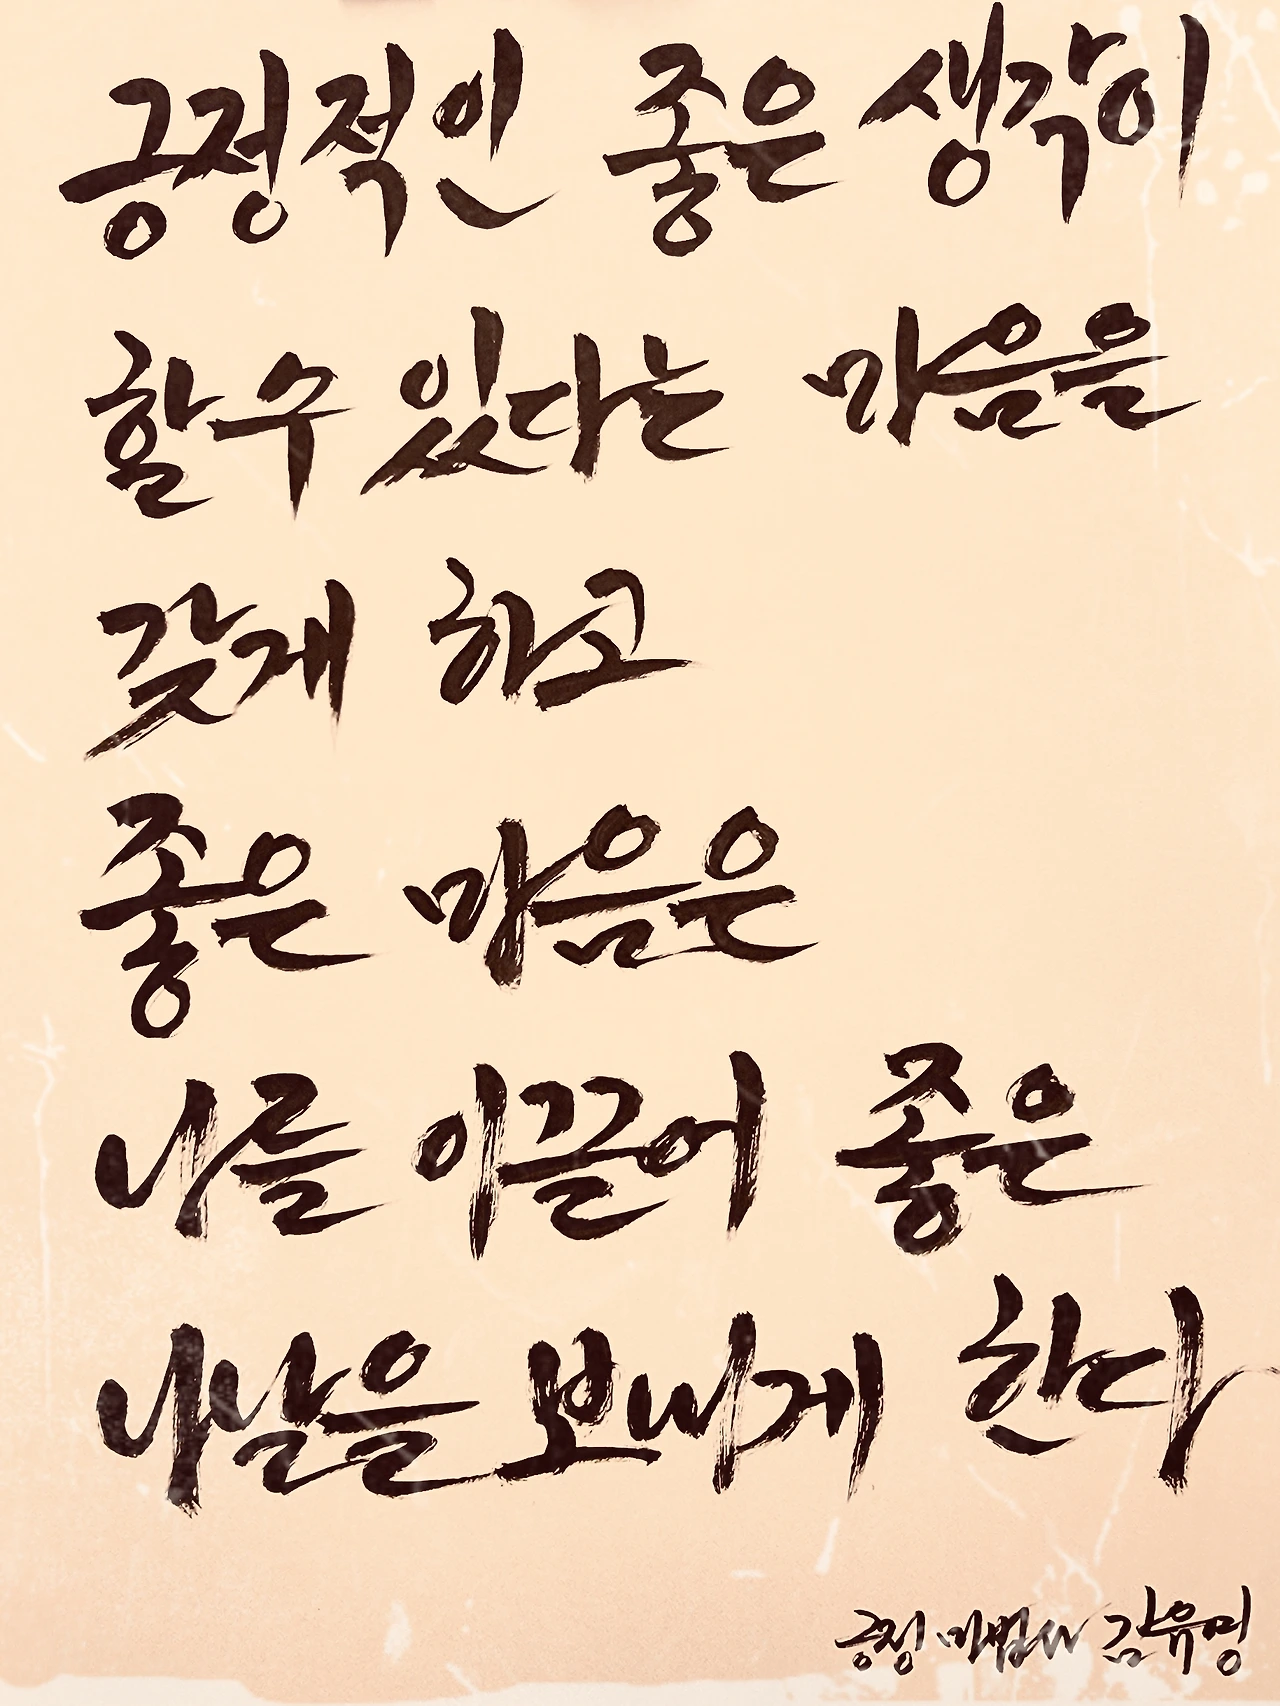 긍정적인 좋은 생각이
할수 있다는 마음을
갖게 하고
좋은 마음은
나를 이끌어 좋은
나날을 보내게 한다
긍정 마법사 김유명